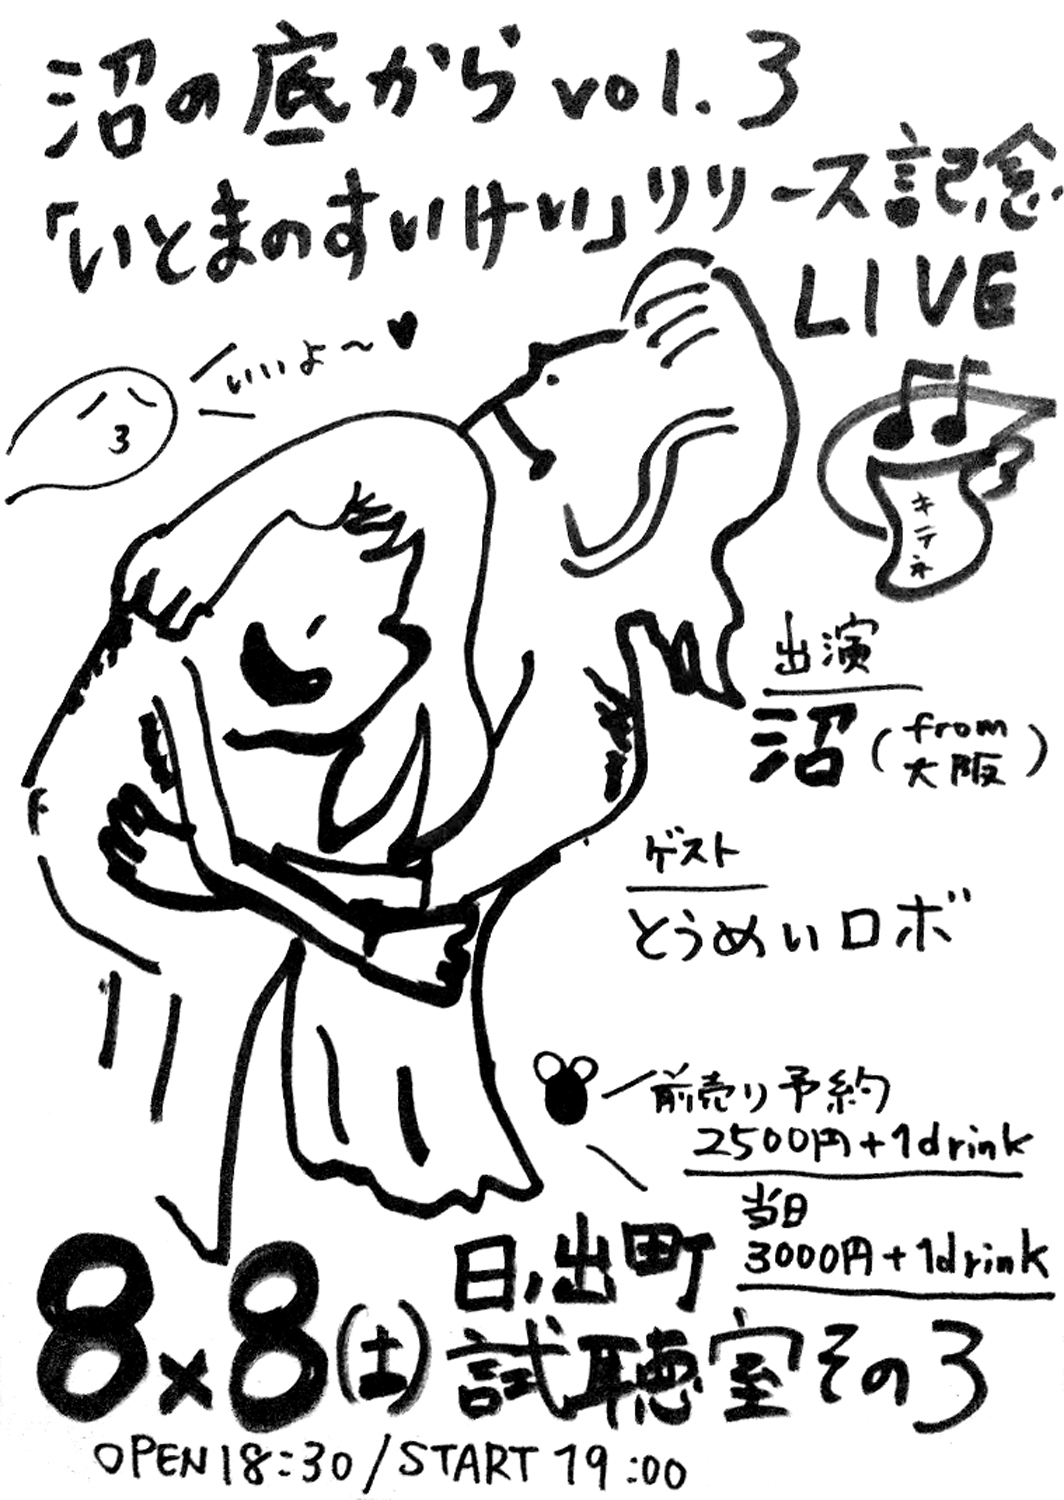 沼の底からvol.3
「いとまのすいけい」リリース記念
LIVE
いいよ〜♥
キテネ
出演
沼(from大阪)
ゲスト
とうめいロボ
前売り予約
2500円+1drink
当日
3000円+1drink
8×8(土)
日ノ出町
試聴室その3
OPEN18:30/START 19:00